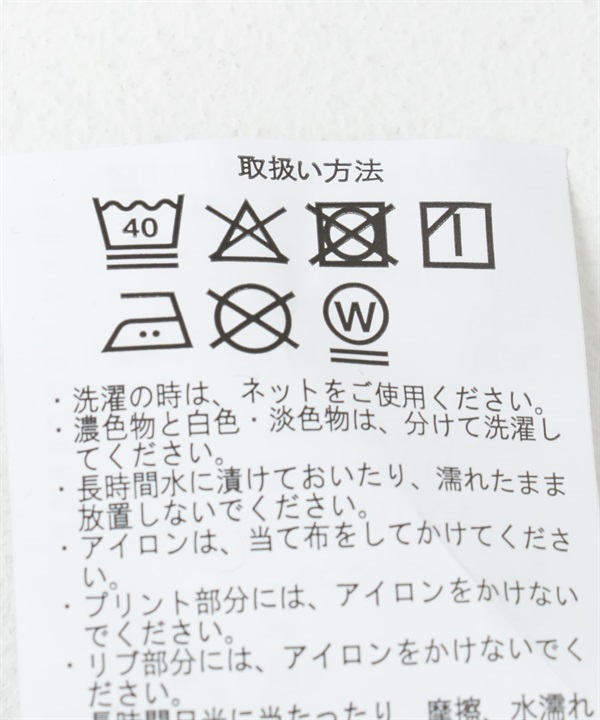 取扱い方法
40
W
・洗濯の時は、ネットをご使用ください。
・濃色物と白色・淡色物は、分けて洗濯し
てください。
・長時間水に漬けておいたり、濡れたまま
放置しないでください。
・アイロンは、当て布をしてかけてくださ
い。
・プリント部分には、アイロンをかけない
でください。
・リブ部分には、アイロンをかけないでく
ださい。
長時間日光に当たったり、摩擦、水濡れ